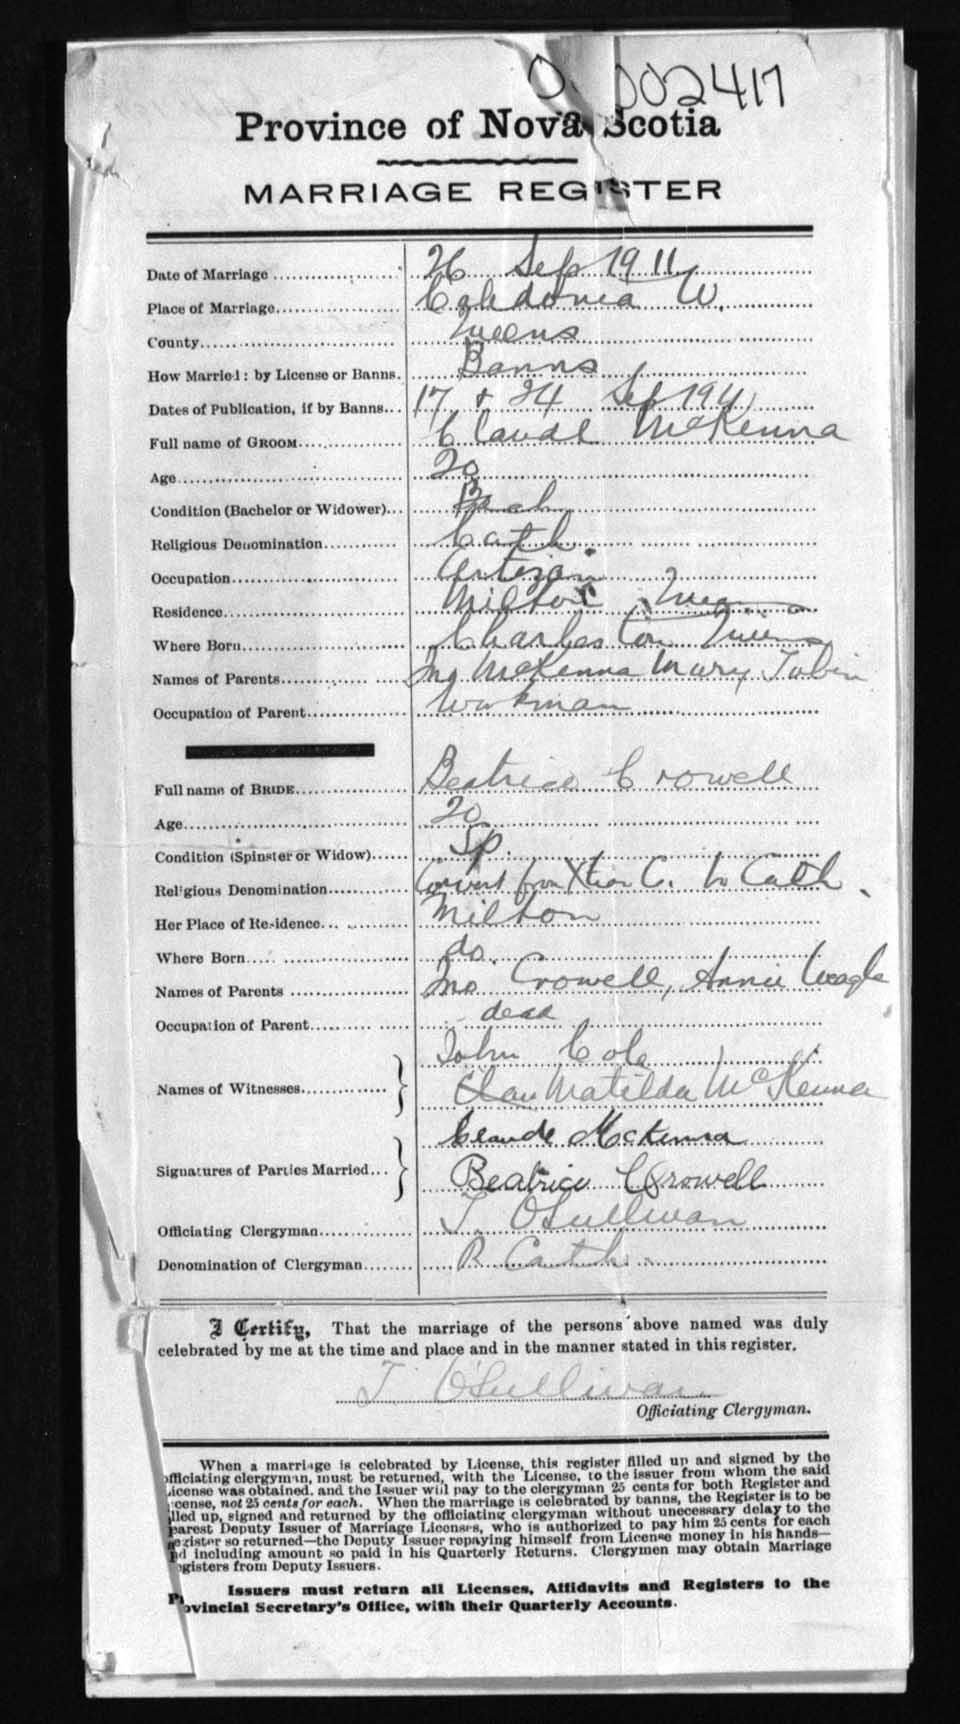 002417
Province of Nova Scotia
MARRIAGE REGISTER
Date of Marriage 26 Sep 1911
Place of Marriage Caledonia W.
County Queens
How Married: by License or Banns. Banns
Dates of Publication, if by Banns 17 & 24 Sep 1911
Full name of GROOM Claude McKenna
Age 20
Condition (Bachelor or Widower) Bach
Religious Denomination Cath.
Occupation Artizan
Residence Milton, Queens
Where Born Charleston Queens
Names of Parents Jno McKenna Mary Tobin
Occupation of Parent Workman
Full name of BRIDE Beatrice Crowell
Age 20
Condition (Spinster or Widow) Sp.
Religious Denomination Convert from Xtian C. to Cath.
Her Place of Residence Milton
Where Born do.
Names of Parents Jno Crowell, Annie Weagle
Occupation of Parent dead
Names of Witnesses John Cole
Matilda McKenna
Signatures of Parties Married Claude McKenna
Beatrice Crowell
Officiating Clergyman T. O'Sullivan
Denomination of Clergyman R. Cath.
I Certify, That the marriage of the persons above named was duly
celebrated by me at the time and place and in the manner stated in this register.
T O'Sullivan
Officiating Clergyman.
When a marriage is celebrated by License, this register filled up and signed by the
officiating clergyman, must be returned, with the License, to the issuer from whom the said
icense was obtained, and the Issuer will pay to the clergyman 25 cents for both Register and
cense, not 25 cents for each. When the marriage is celebrated by banns, the Register is to be
lled up, signed and returned by the officiating clergyman without unnecessary delay to the
earest Deputy Issuer of Marriage Licenses, who is authorized to pay him 25 cents for each
egister so returned—the Deputy Issuer repaying himself from License money in his hands—
nd including amount so paid in his Quarterly Returns. Clergymen may obtain Marriage
gisters from Deputy Issuers.
Issuers must return all Licenses, Affidavits and Registers to the
Provincial Secretary's Office, with their Quarterly Accounts.